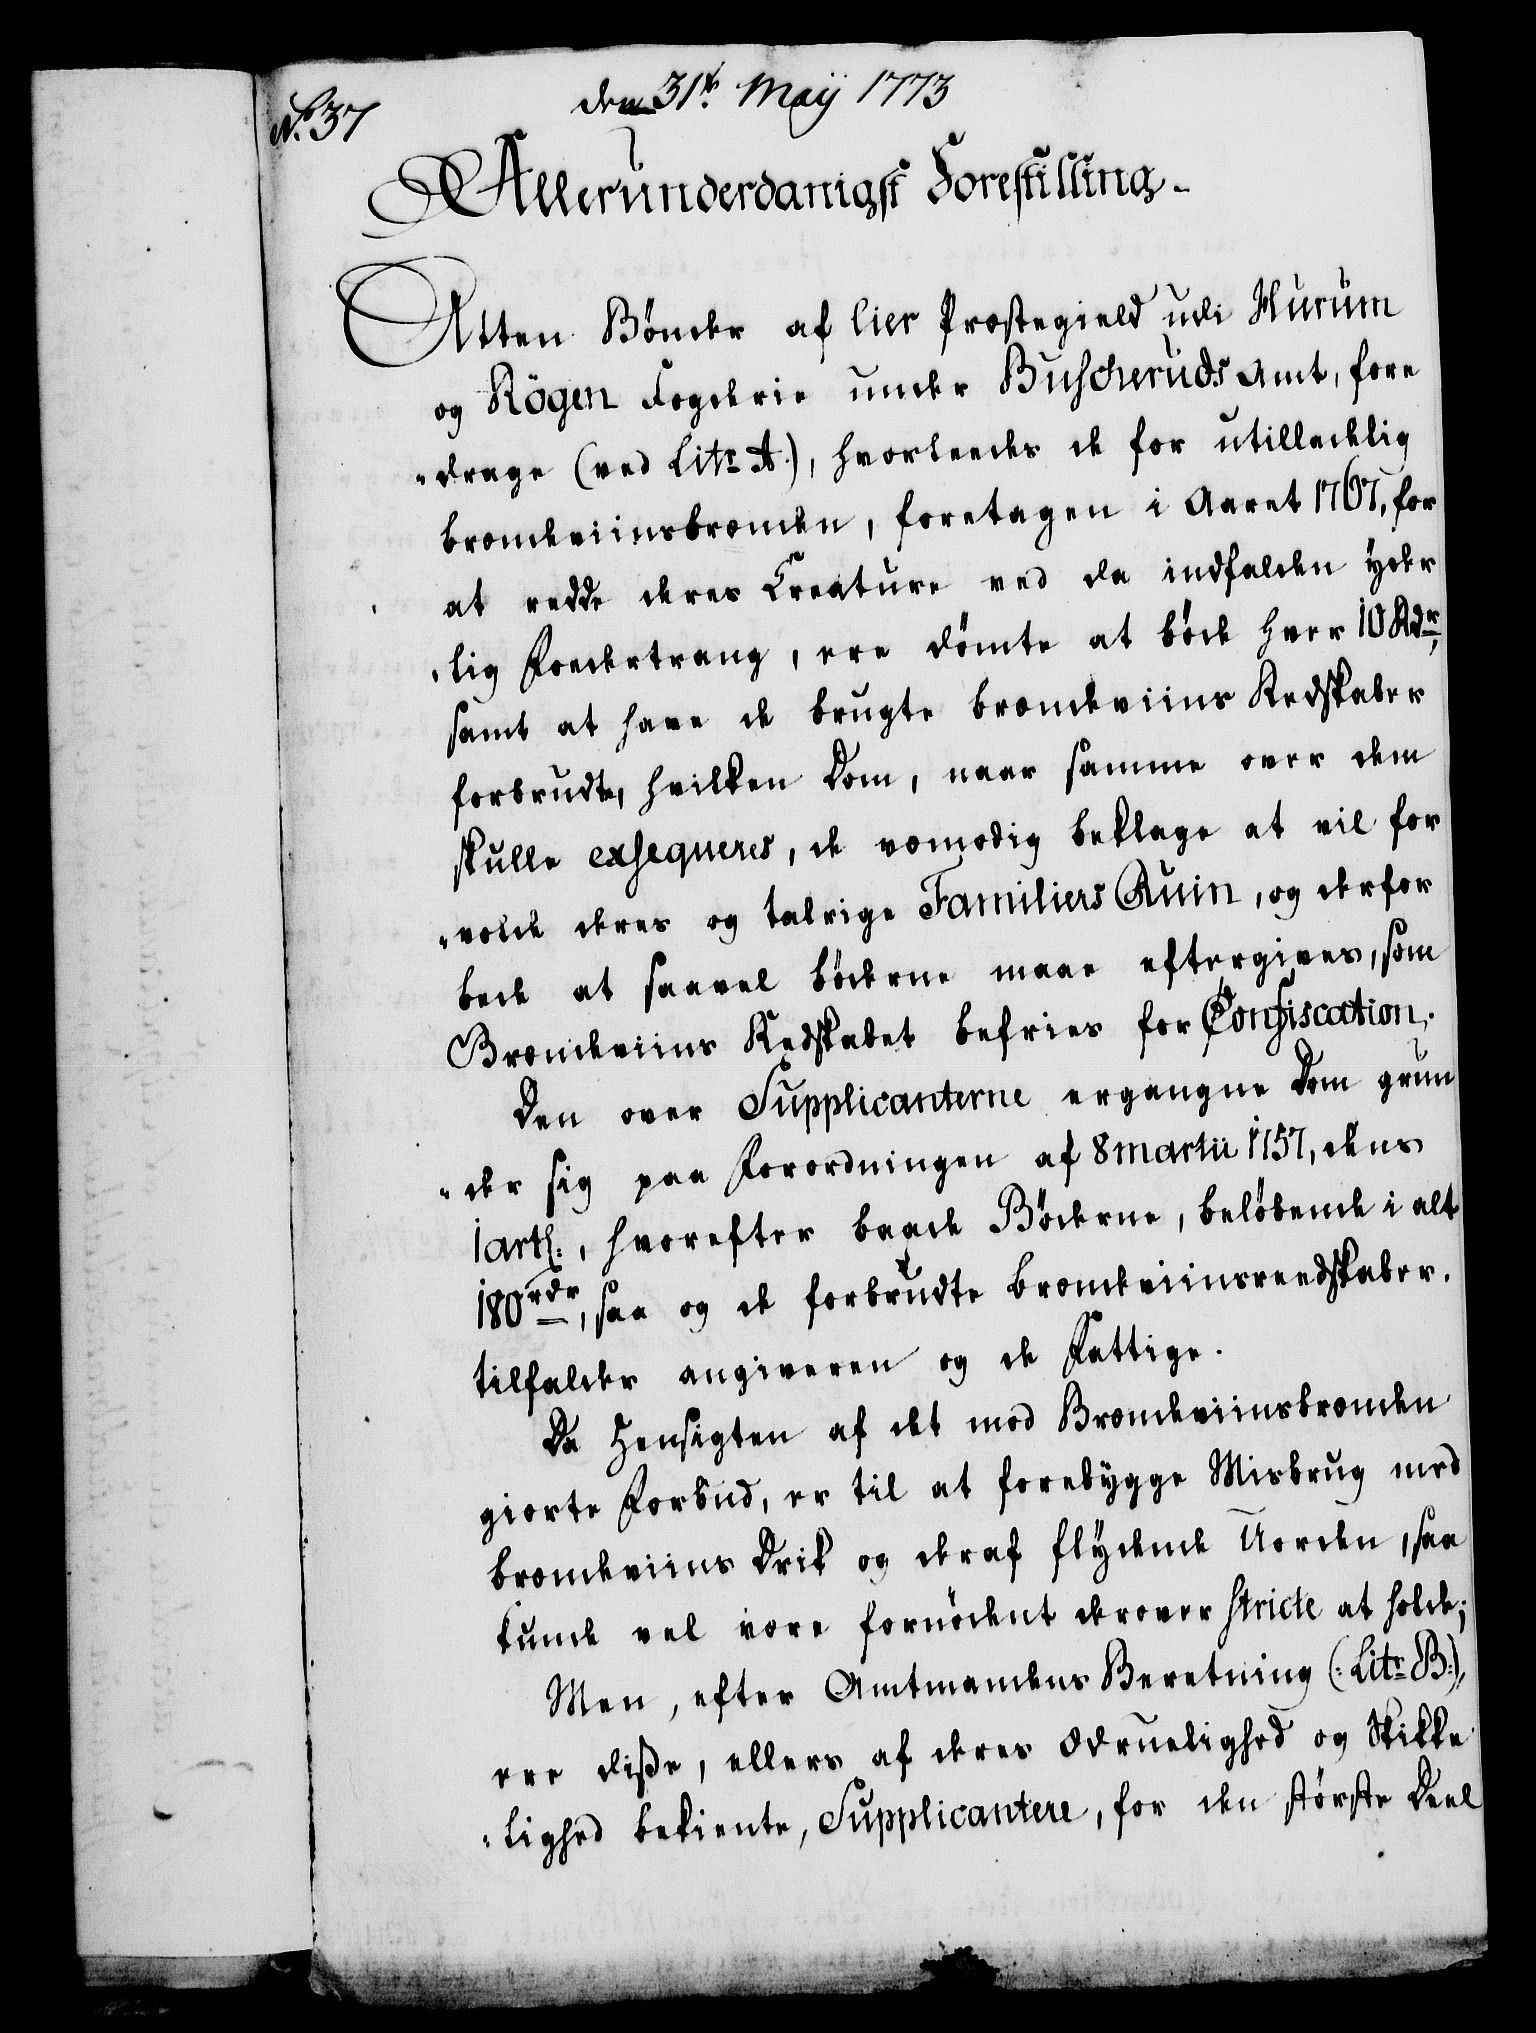 No. 37
den 31te Maÿ 1773
Allerunderdanigst Forestilling.
Atten Bönder af Lier Præstegield udi Hurum
og Rögen Fogderie under Buscheruds Amt, fore
-drage (ved Litr. A.), hvorledes de for utilladelig
brændeviinsbrænden, foretagen i Aaret 1767, for
at redde deres Creature ved da indfalden yder
-lig Fodertrang, ere dömte at böde hver 10 Rdr.,
samt at have de brugte brændeviins Redskaber
forbrudte, hvilken Dom, naar samme over dem
skulle exseqveres, de vemodig beklage at vil for
-volde deres og talrige Familiers Ruin, og derfor
bede at saavel böderne maae eftergives, som
Brændeviins Redskabet befries for Confiscation.
Den over Supplicanterne ergangne Dom grun
-der sig paa Forordningen af 8 Martii 1757, dens
1 art:, hvorefter baade Böderne, belöbende i alt
180 rdr, saa og de forbrudte brændeviinsreedskaber.
tilfalder angiveren og de Fattige.
Da Hensigten af det mod Brændeviinsbrænden
giorte Forbud, er til at forebygge Misbrug med
brændeviins Drik og deraf flydende Uorden, saa
kunde vel være fornödent derover stricte at holde;
Men, efter Amtmandens Beretning (: Litr. B:),
ere diße, ellers af deres Ædruelighed og Skikke
-lighed bekiente, Supplicantere, for den störste Deel